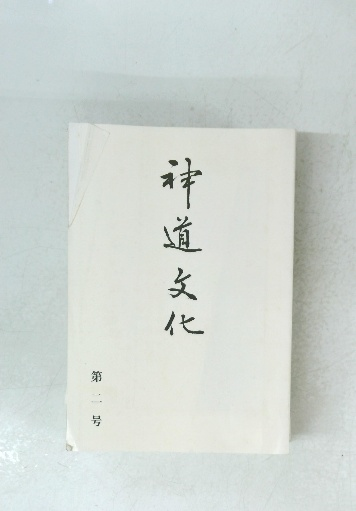 神道文化
第二号